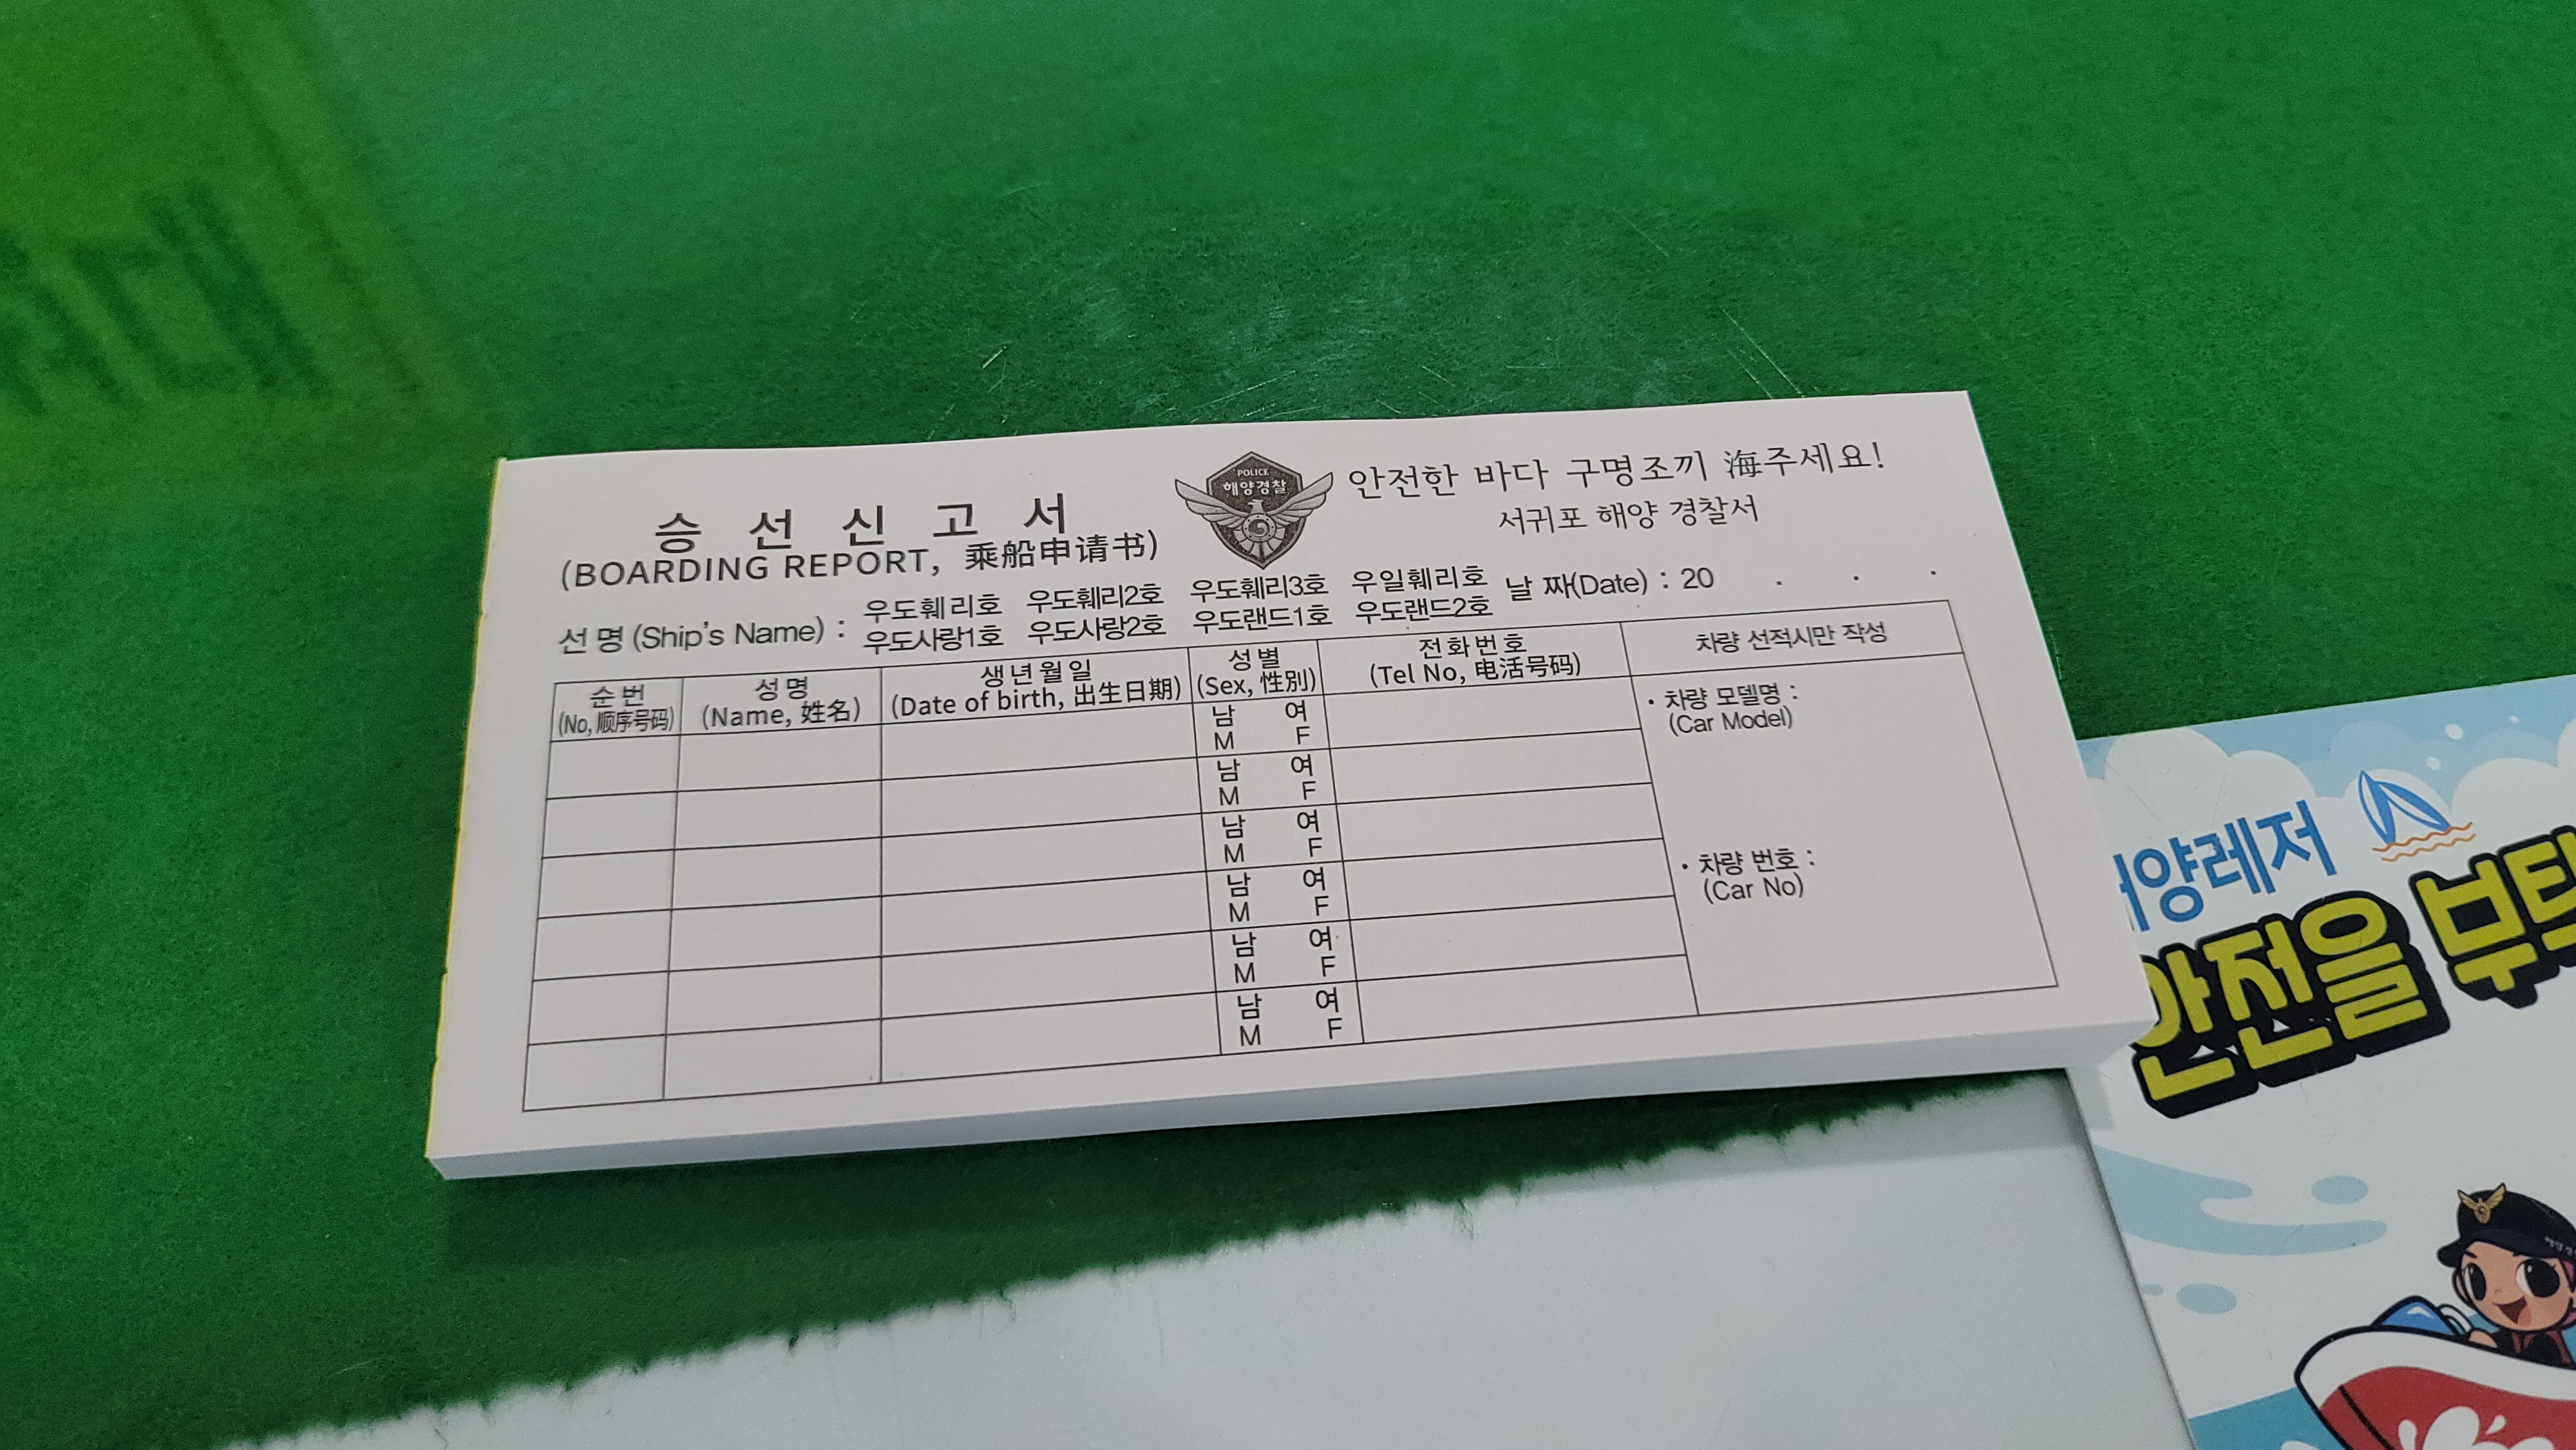 승 선 신 고 서
(BOARDING REPORT, 乘船申请书)
POLICE
해양경찰
안전한 바다 구명조끼 海주세요!
서귀포 해양 경찰서
선 명 (Ship's Name) :
우도훼리호 우도훼리2호 우도훼리3호 우일훼리호
우도사랑1호 우도사랑2호 우도랜드1호 우도랜드2호
날 짜(Date) : 20 . . .
순 번
(No, 顺序号码)
성 명
(Name, 姓名)
생 년 월 일
(Date of birth, 出生日期)
성 별
(Sex, 性別)
전 화 번 호
(Tel No, 电活号码)
차량 선적시만 작성
남 여
M F
남 여
M F
남 여
M F
남 여
M F
남 여
M F
남 여
M F
· 차량 모델명 :
(Car Model)
· 차량 번호 :
(Car No)
양레저
안전을 부탁